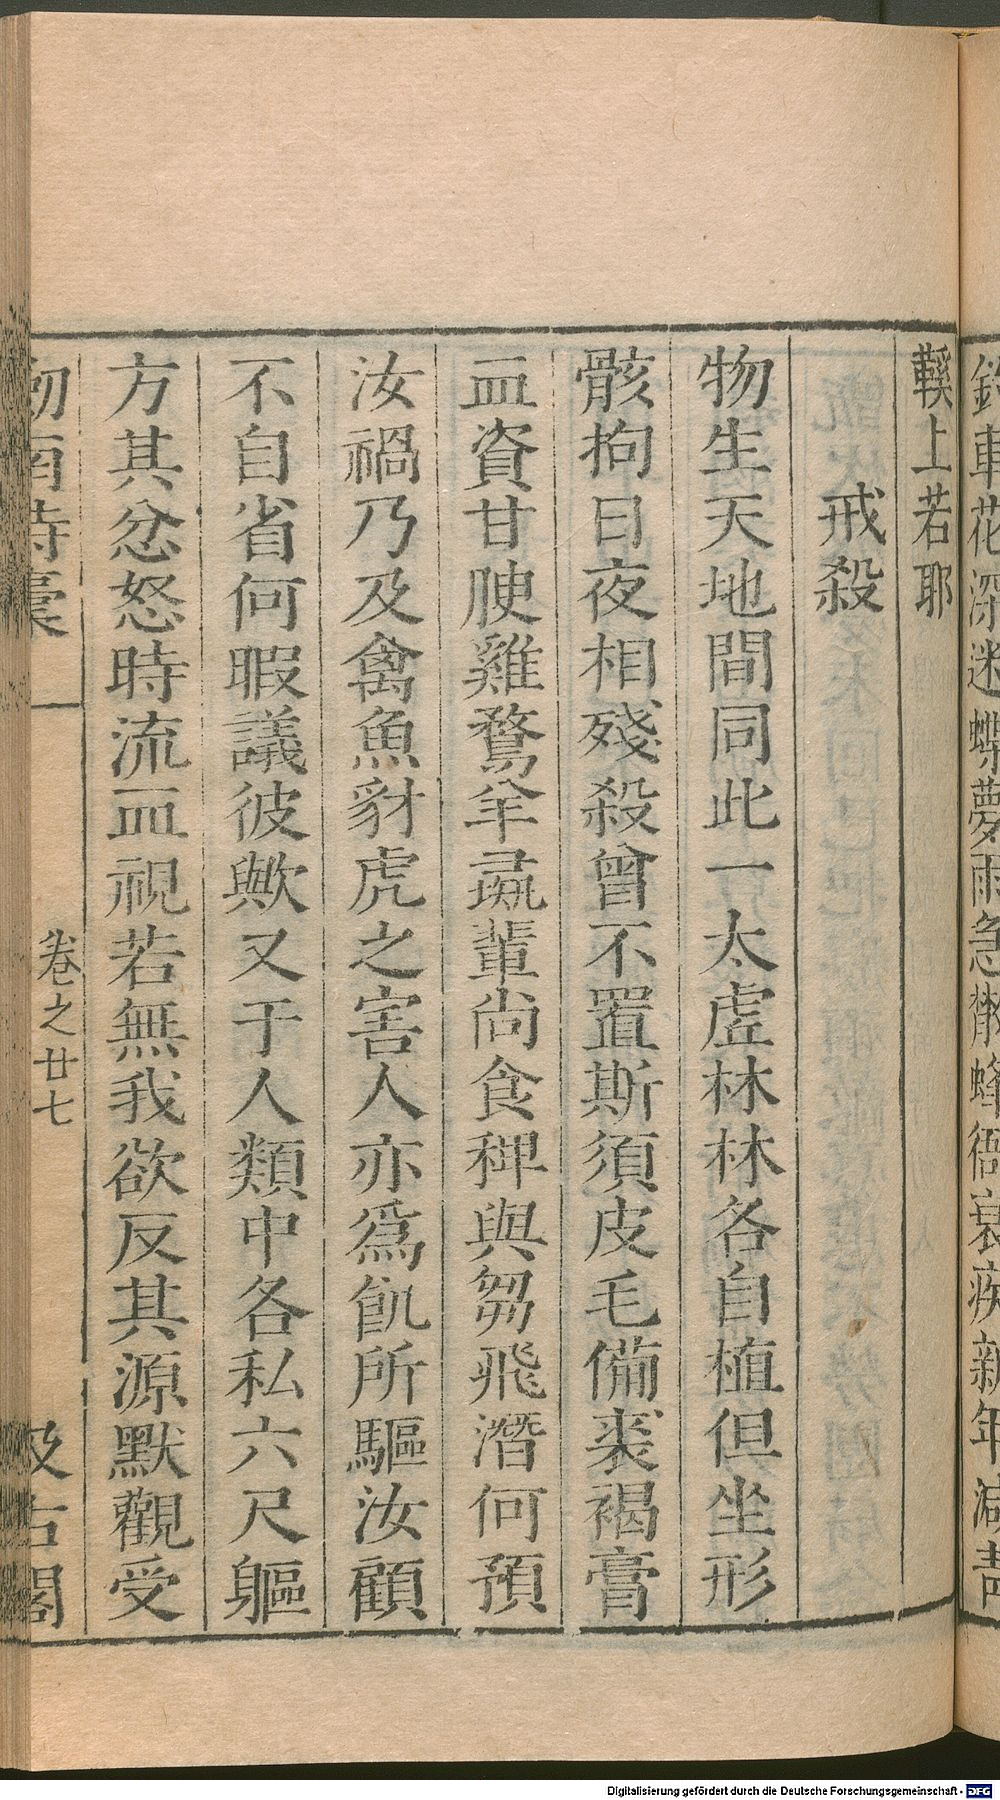 車花深迷蝶夢雨急
蜂衙衰疾新年減
鞵上若耶
戒殺
物生天地間同此一太虛林林各自植但坐形
骸拘日夜相殘殺曾不置斯須皮毛備裘褐膏
血資甘腴雞鶩羊彘輩尚食稗與芻飛潛何預
汝禍乃及禽魚豺虎之害人亦爲飢所驅汝顧
不自省何暇議彼歟又于人類中各私六尺軀
方其忿怒時流血視若無我欲反其源默觀受
劒南詩稾 卷之廿七 汲古閣
Digitalisierung gefördert durch die Deutsche Forschungsgemeinschaft - DFG